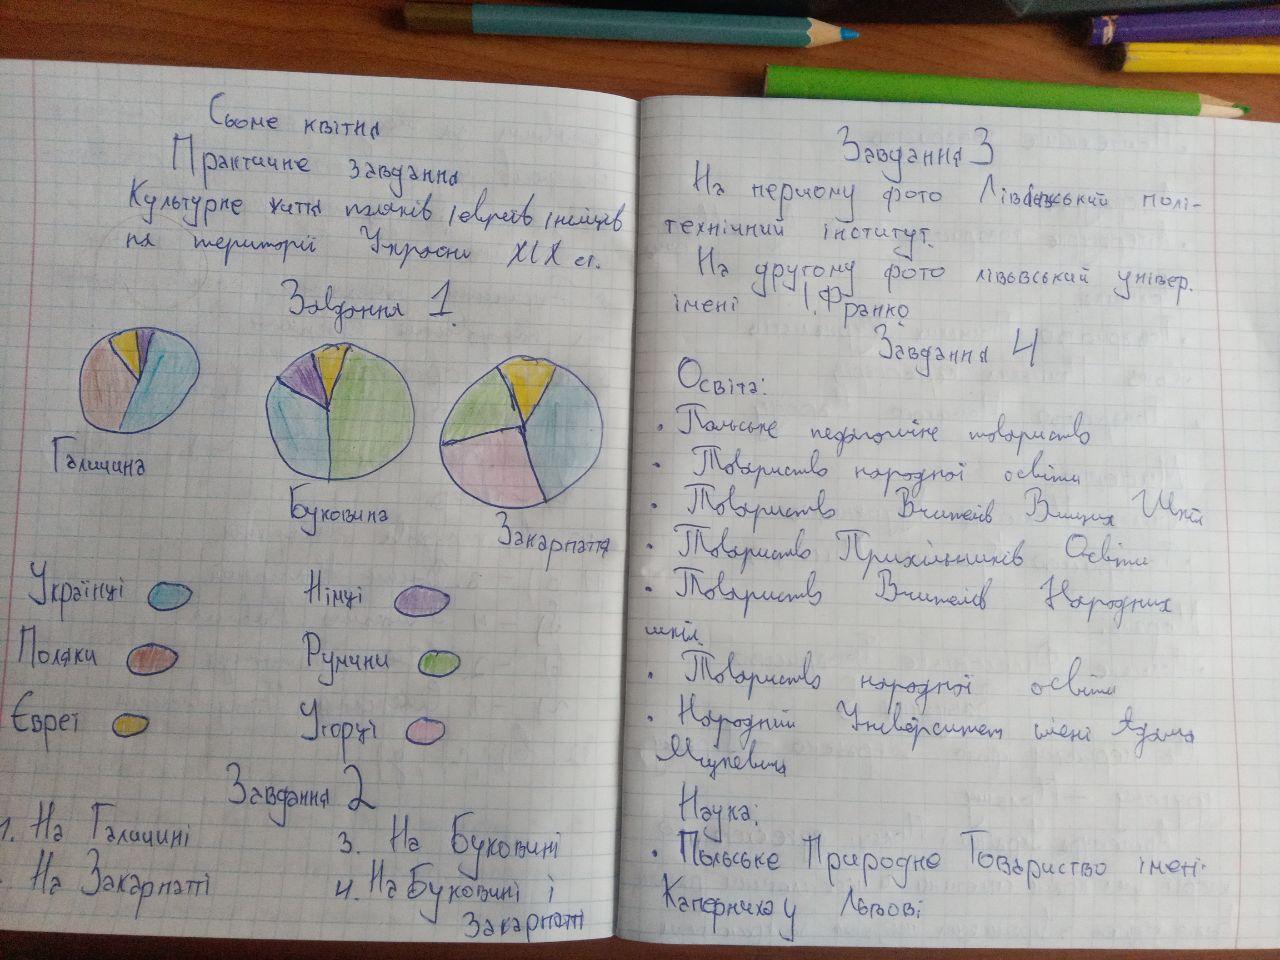 Сьоме квітня
Практичне завдання
Культурне життя поляків, євреїв, німців
на території України XIX ст.
Завдання 1.
Галичина
Буковина
Закарпаття
Українці
Німці
Поляки
Румуни
Євреї
Угорці
Завдання 2
1. На Галичині
3. На Буковині
На Закарпатті
4. На Буковині і
Закарпатті
Завдання 3
На першому фото Львівський полі-
технічний інститут.
На другому фото львівський універ.
імені І. Франко
Завдання 4
Освіта:
• Польське педагогічне товариство
• Товариство народної освіти
• Товариство Вчителів Вищих Шкіл
• Товариство Прихільників Освіти
• Товариство Вчителів Народних
шкіл.
• Товариство народної освіти
• Народний Університет імені Адама
Міцкевича
Наука:
• Польське Природне Товариство імені
Каперника у Львові